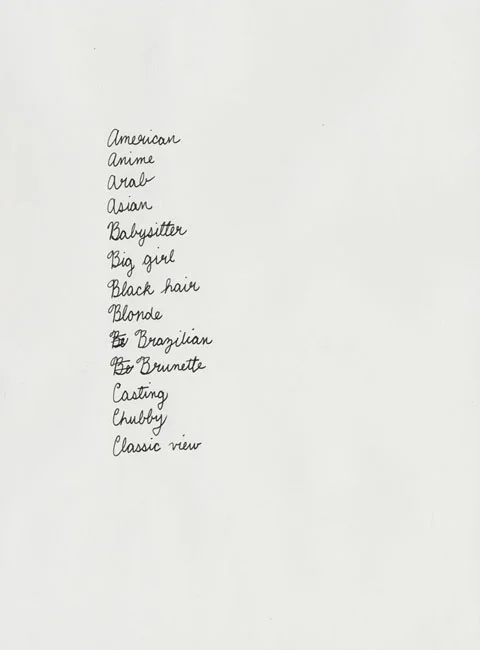 American
Anime
Arab
Asian
Babysitter
Big girl
Black hair
Blonde
Brazilian
Brunette
Casting
Chubby
Classic view